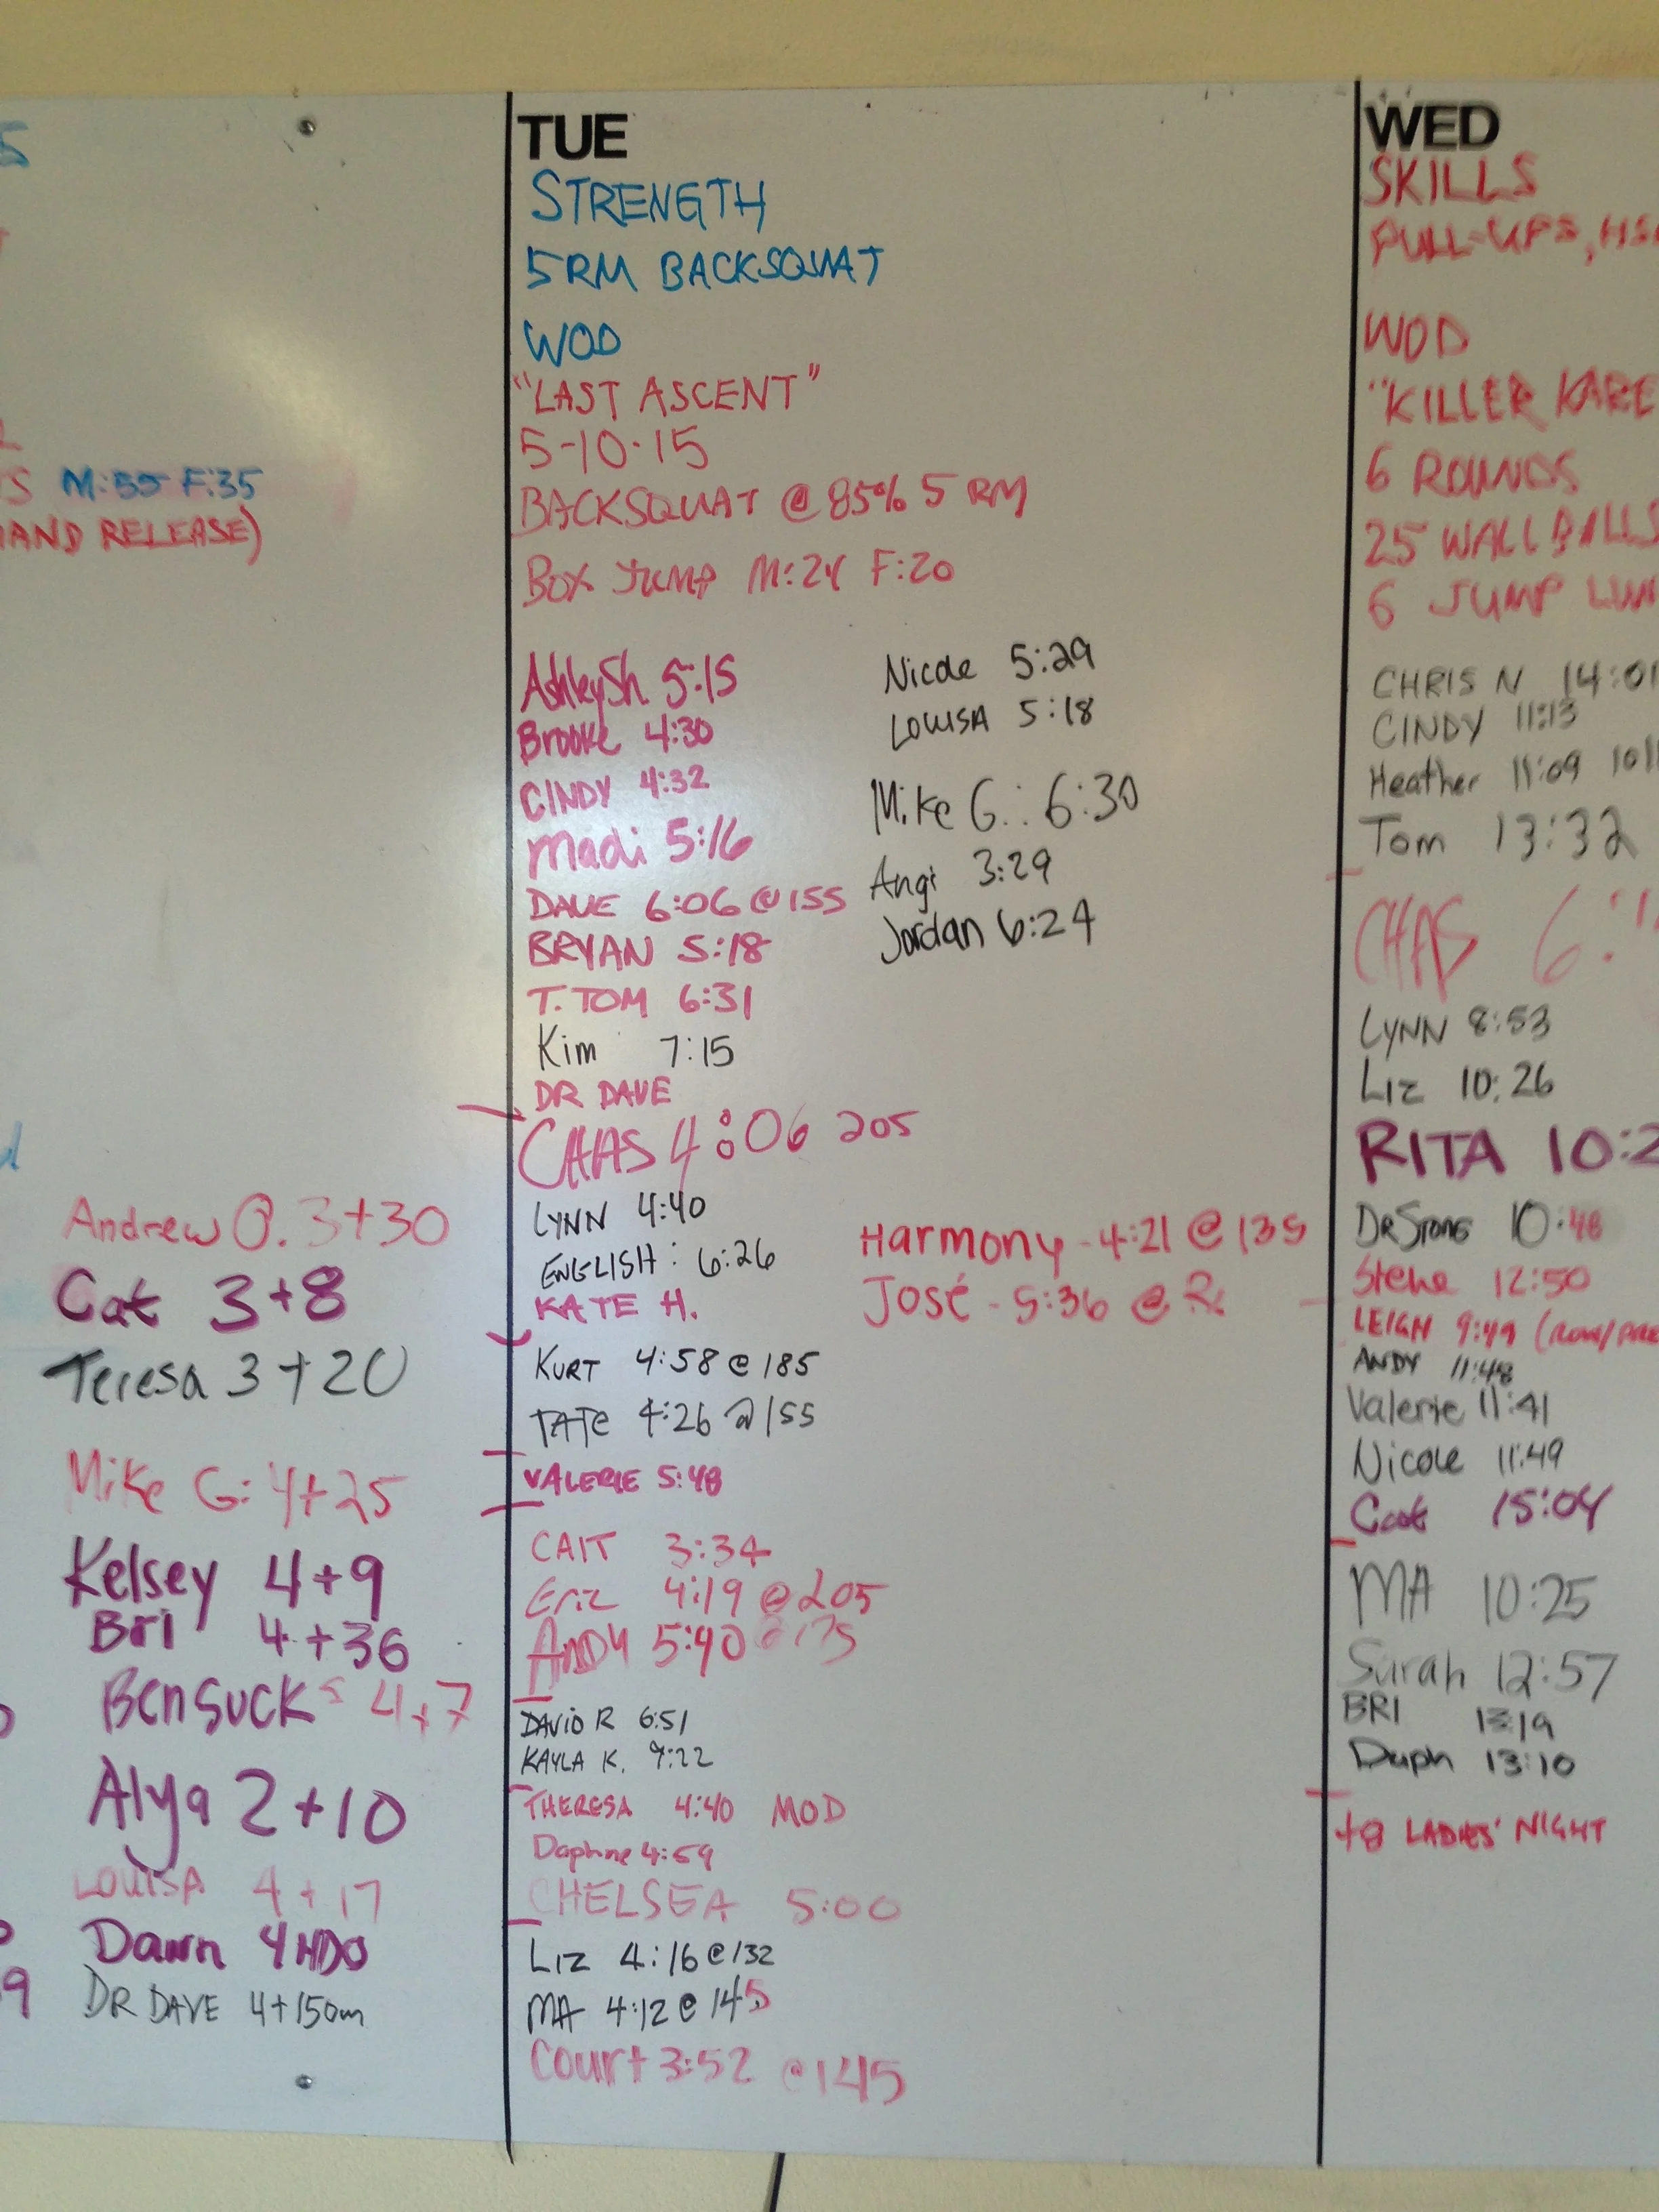 M:55 F:35
HAND RELEASE)
Andrew @. 3+30
Cat 3+8
Teresa 3+20
Mike G: 4+25
Kelsey 4+9
Bri 4+36
Ben Suck 4+7
Alya 2+10
LOUISA 4+17
Dawn
DR DAVE 4+150m
TUE
STRENGTH
5RM BACKSQUAT
WOD
"LAST ASCENT"
5-10-15
BACKSQUAT @ 85% 5 RM
BOX JUMP M:24 F:20
AshleySh 5:15
Brooke 4:30
CINDY 4:32
Madi 5:16
DAVE 6:06 @ 155
BRYAN 5:18
T. TOM 6:31
Kim 7:15
DR DAVE
CHAS 4:06 205
LYNN 4:40
ENGLISH: 6:26
KATE H.
KURT 4:58 @ 185
TATE 4:26 @ 155
VALERIE 5:48
CAIT 3:34
Eriz 4:19 @ 205
ANDY 5:40
DAVID R 6:51
KAYLA K. 7:22
THERESA 4:40 MOD
Daphne 4:59
CHELSEA 5:00
LIZ 4:16 @ 132
MA 4:12 @ 145
Court 3:52 @ 145
Nicole 5:29
LOUISA 5:18
Mike G.: 6:30
Angi 3:29
Jordan 6:24
Harmony - 4:21 @ 135
José - 5:36 @ Rx
WED
SKILLS
PULL-UPS,
WOD
"KILLER KARE
6 ROUNDS
25 WALL BALLS
6 JUMP
CHRIS N 14:01
CINDY 11:13
Heather 11:09
Tom 13:32
CHAS
LYNN 8:53
LIZ 10:26
RITA 10:2
DR Stong 10:48
Steve 12:50
LEIGH 9:49
ANDY 11:48
Valerie 11:41
Nicole 11:49
Cat 15:04
MA 10:25
Sarah 12:57
BRI 13:19
Daph 13:10
+8 LADIES' NIGHT